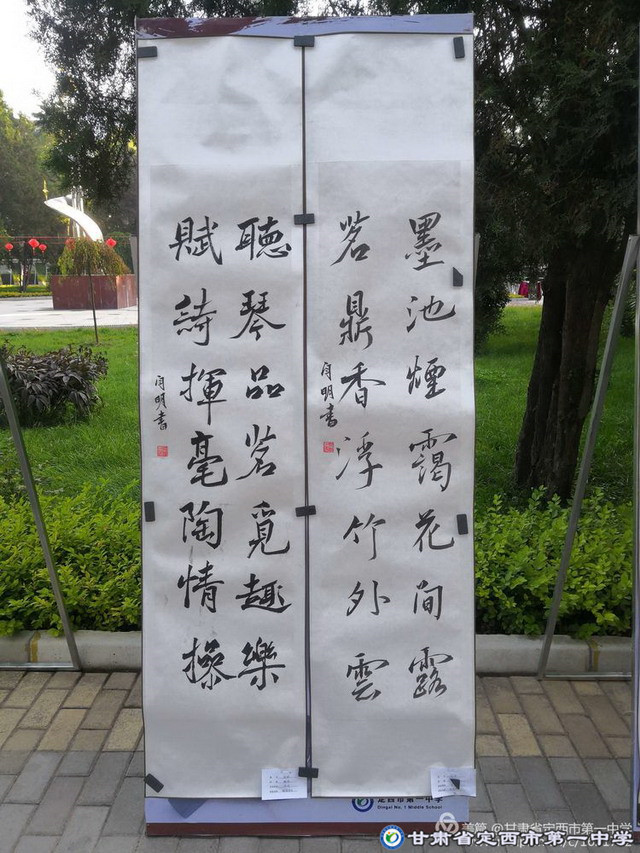 墨池煙靄花間露
茗鼎香浮竹外雲
明書
聽琴品茗覓趣樂
賦綺揮毫陶情操
明書
定西市第一中学
Dingxi No. 1 Middle School
美篇 @甘肃省定西市第一中学
甘肃省定西市第一中学